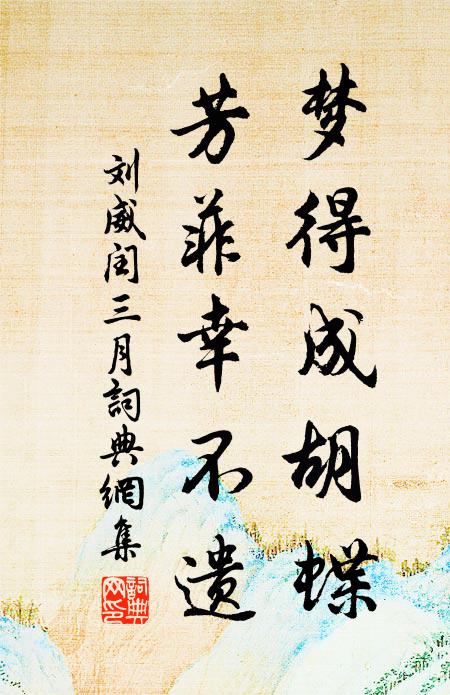 梦得成胡蝶
芳菲幸不遗
刘威闰三月詞典網集
詞典